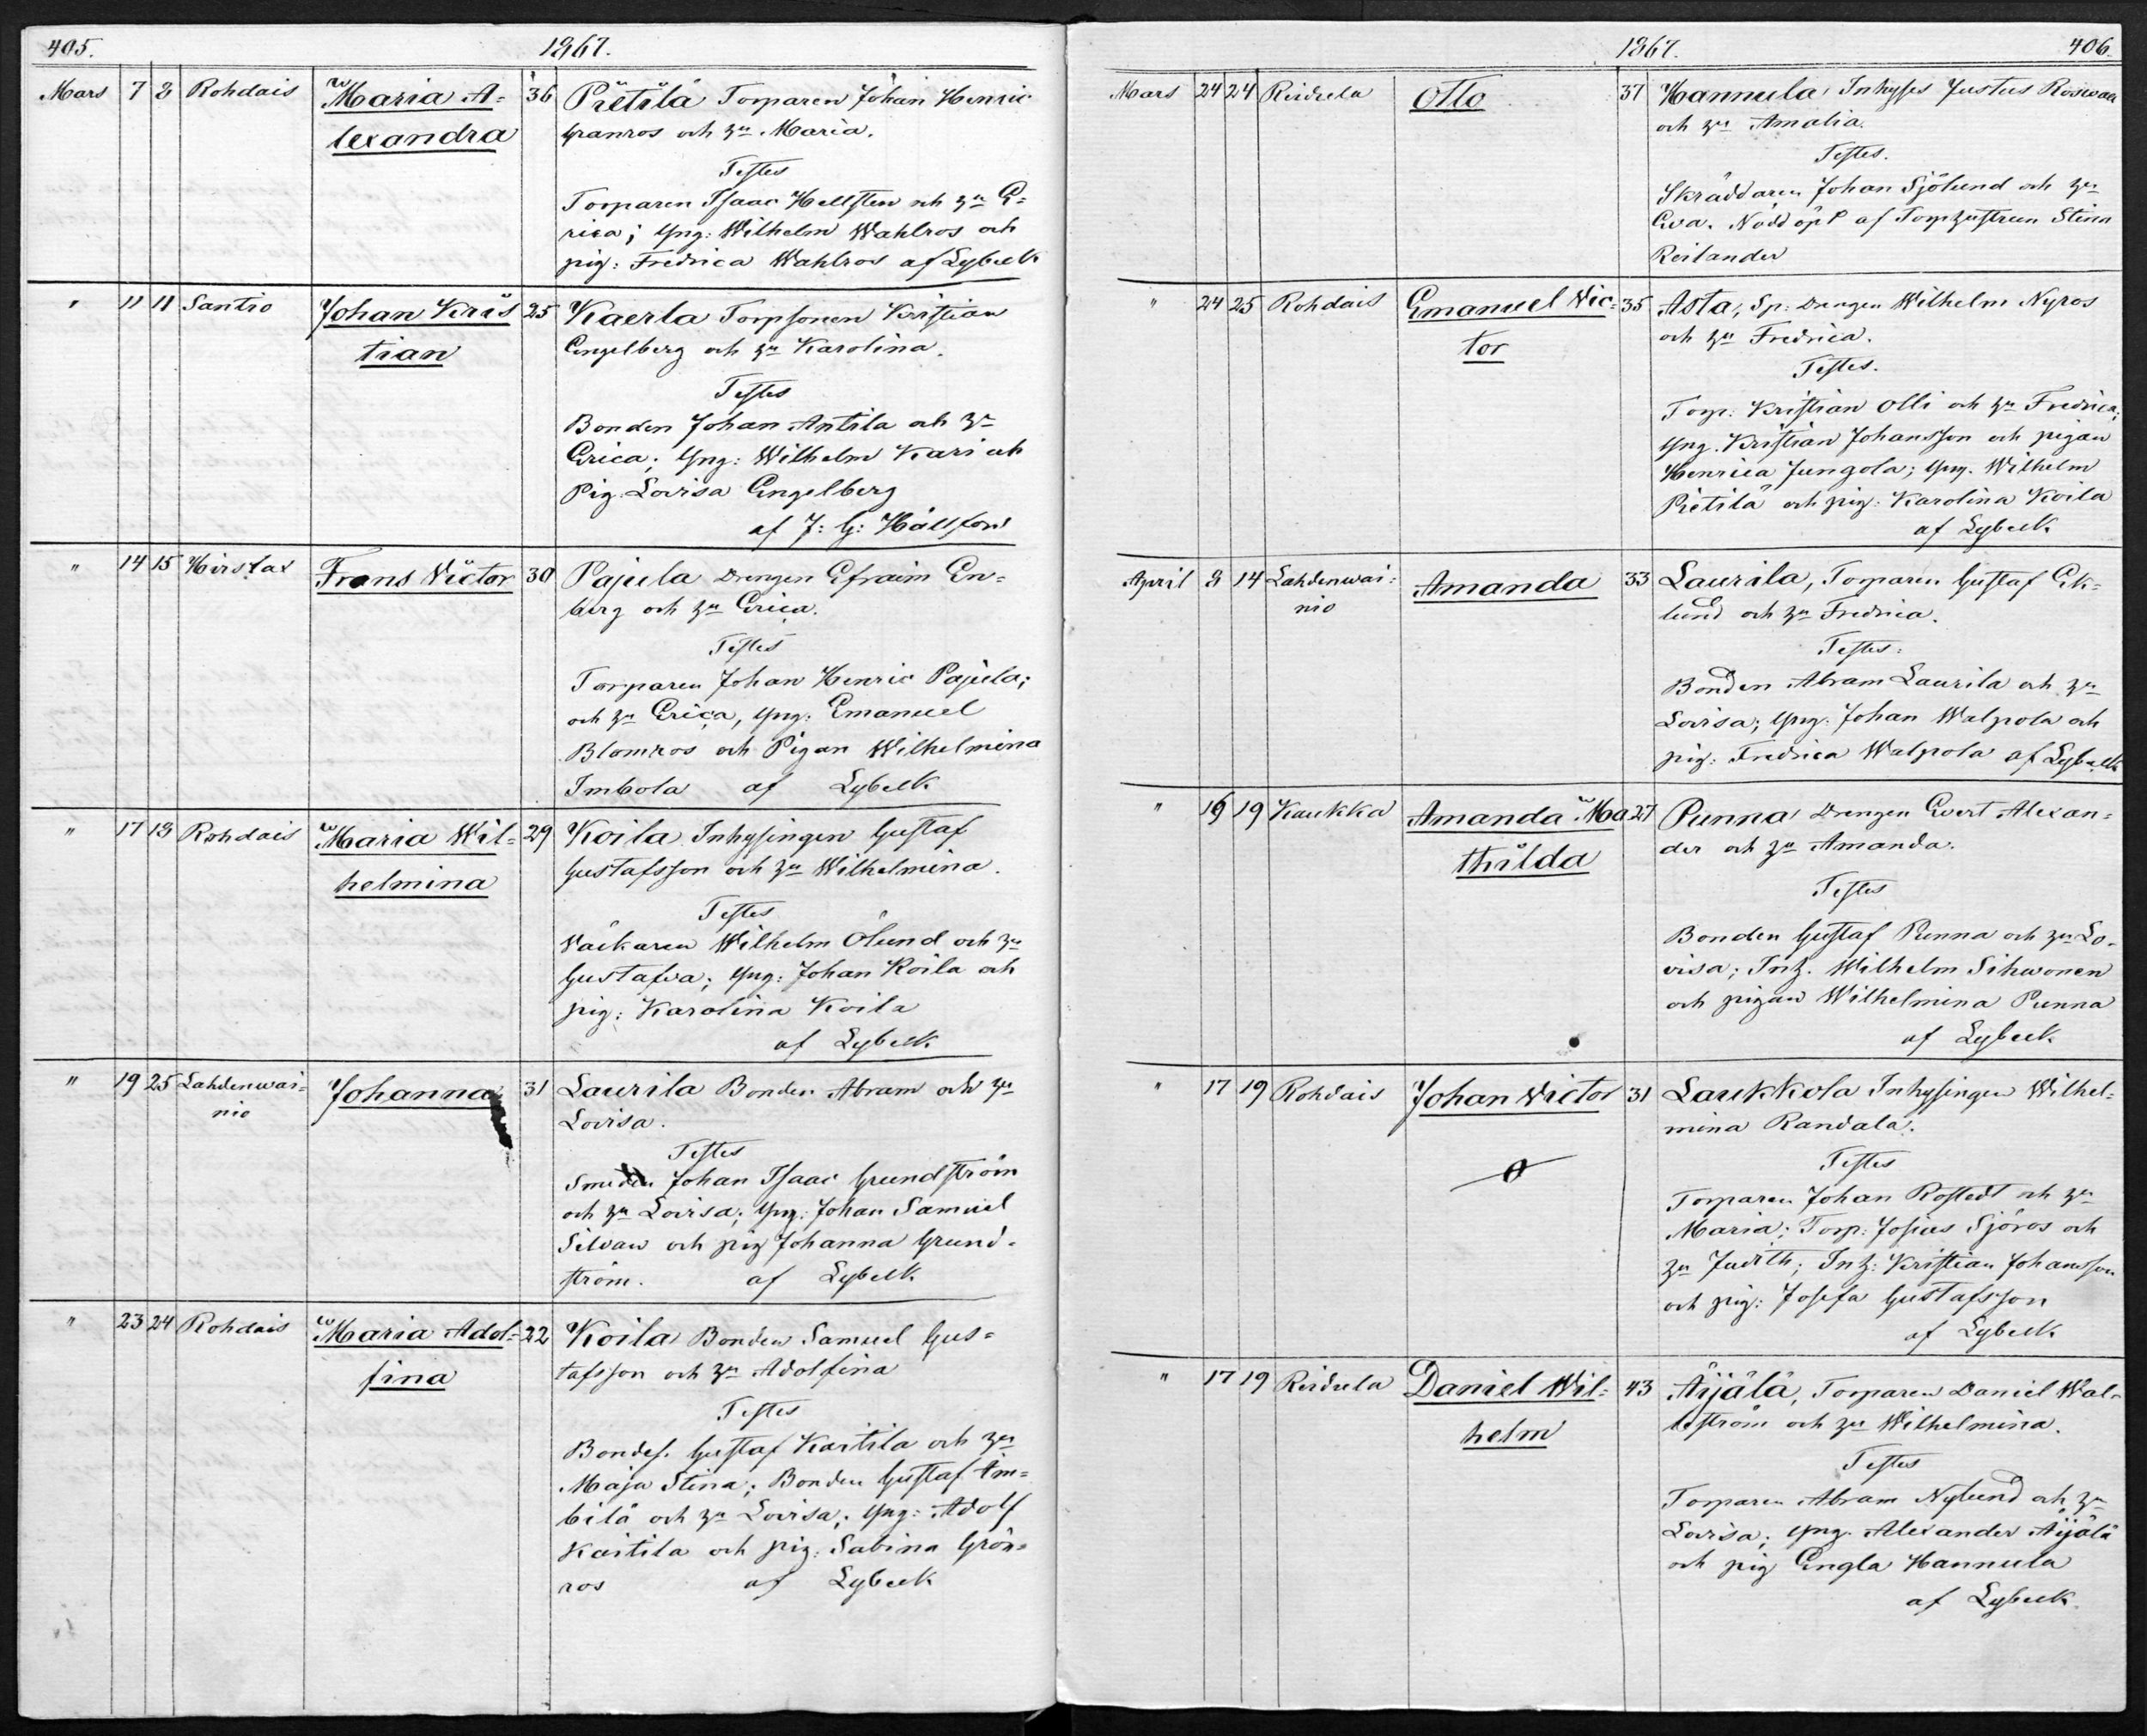 405. 1867.
Mars 7 8 Rohdais Maria A= 36 Pietilä Torparen Johan Henric
lexandra Granros och h:u Maria.
Testes
Torparen Isaac Hellsten och h:u E=
rica; Yng: Wilhelm Wahlros och
pig: Fredrica Wahlros af Lybeck
" 11 11 Santio Johan Kris 25 Kaerla Torpsonen Kristian
tian Engelberg och h:u Karolina.
Testes
Bonden Johan Antila och h:u
Erica; Yng: Wilhelm Kari och
Pig. Lovisa Engelberg
af J: G: Hällfors
" 14 15 Hirslax Frans Victor 30 Pajula Drengen Efraim En=
berg och h:u Erica.
Testes
Torparen Johan Henric Pajula;
och h:u Erica, Yng: Emanuel
Blomros och Pigan Wilhelmina
Imbola af Lybeck
" 17 18 Rohdais Maria Wil= 29 Koila Inhysingen Gustaf
helmina Gustafsson och h:u Wilhelmina.
Testes
Wäckaren Wilhelm Ölund och h:u
Gustafva; Yng: Johan Koila och
pig: Karolina Koila
af Lybeck
" 19 25 Lahdenwai= Johanna 31 Laurila Bonden Abram och h:u
nio Lovisa.
Testes
Smeden Johan Isaac Grundström
och h:u Lovisa; Yng: Johan Samuel
Silvan och pig Johanna Grund=
ström. af Lybeck
" 23 24 Rohdais Maria Adol= 22 Koila Bonden Samuel Gus=
fina tafsson och h:u Adolfina
Testes
Bondes. Gustaf Kaitila och h:u
Maja Stina; Bonden Gustaf Im=
bilä och h:u Lovisa; Yng: Adolf
Kaitila och pig: Sabina Grön=
ros af Lybeck
1867. 406.
Mars 24 24 Reidula Otto 37 Hannula Inhyses Justus
och h:u Amalia.
Testes.
Skräddaren Johan Sjölund och h:u
Eva. Nöddöpt af Torphustrun Stina
Reilander
" 24 25 Rohdais Emanuel Vic= 35 Asta, Sp: Drengen Wilhelm Nyros
tor och h:u Fredrica.
Testes.
Torp: Kristian Olli och h:u Fredrica;
Yng. Kristian Johansson och pigan
Henrica Jungola; Yng. Wilhelm
Pietilä och pig: Karolina Koila
af Lybeck
April 8 14 Lahdenwai= Amanda 33 Laurila, Torparen Gustaf Ek=
nio lund och h:u Fredrica.
Testes:
Bonden Abram Laurila och h:u
Lovisa; Yng: Johan Walpola och
pig: Fredrica Walpola af Lybeck
" 16 19 Kaukka Amanda Ma 27 Punna Drengen Evert Alexan=
thilda der och h:u Amanda.
Testes
Bonden Gustaf Punna och h:u Lo=
visa; Inh. Wilhelm Sihwonen
och pigan Wilhelmina Punna
af Lybeck
" 17 19 Rohdais Johan Victor 31 Laukkola Inhysingen Wilhel=
mina Randala.
Testes
Torparen Johan Rostedt och h:u
Maria; Torp: Josias Sjöros och
h:u Judith; Inh: Kristian Johansson
och pig: Josefa Gustafsson
af Lybeck
" 17 19 Reidula Daniel Wil= 43 Äijälä, Torparen Daniel Wal=
helm ström och h:u Wilhelmina.
Testes
Torparen Abram Nylund och h:u
Lovisa; Yng. Alexander Äijälä
och pig Engla Hannula
af Lybeck.